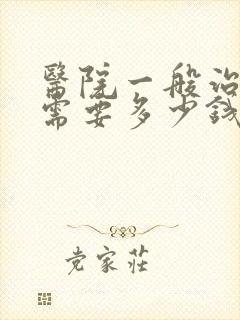 醫院一般治
需要多少錢
党家莊